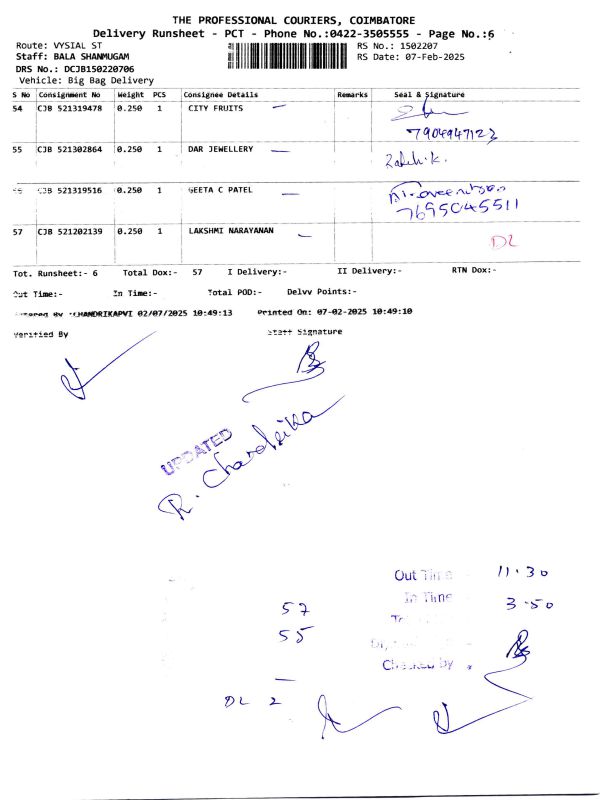 THE PROFESSIONAL COURIERS, COIMBATORE
Delivery Runsheet - PCT - Phone No.:0422-3505555 - Page No.:6
Route: VYSIAL ST
RS No.: 1502207
Staff: BALA SHANMUGAM
RS Date: 07-Feb-2025
DRS No.: DCJB150220706
Vehicle: Big Bag Delivery
S No Consignment No Weight PCS Consignee Details Remarks Seal & Signature
54 CJB 521319478 0.250 1 CITY FRUITS
7904947123
55 CJB 521302864 0.250 1 DAR JEWELLERY
56 CJB 521319516 0.250 1 GEETA C PATEL
7695045511
57 CJB 521202139 0.250 1 LAKSHMI NARAYANAN
DL
Tot. Runsheet:- 6 Total Dox:- 57 I Delivery:- II Delivery:- RTN Dox:-
Out Time:- In Time:- Total POD:- Delvv Points:-
Entered By :CHANDRIKAPVI 02/07/2025 10:49:13 Printed On: 07-02-2025 10:49:10
Verified By Staff Signature
UPDATED
R. Chandrika
Out Time 11.30
In Time 3.50
57
55
Checked by
DL 2